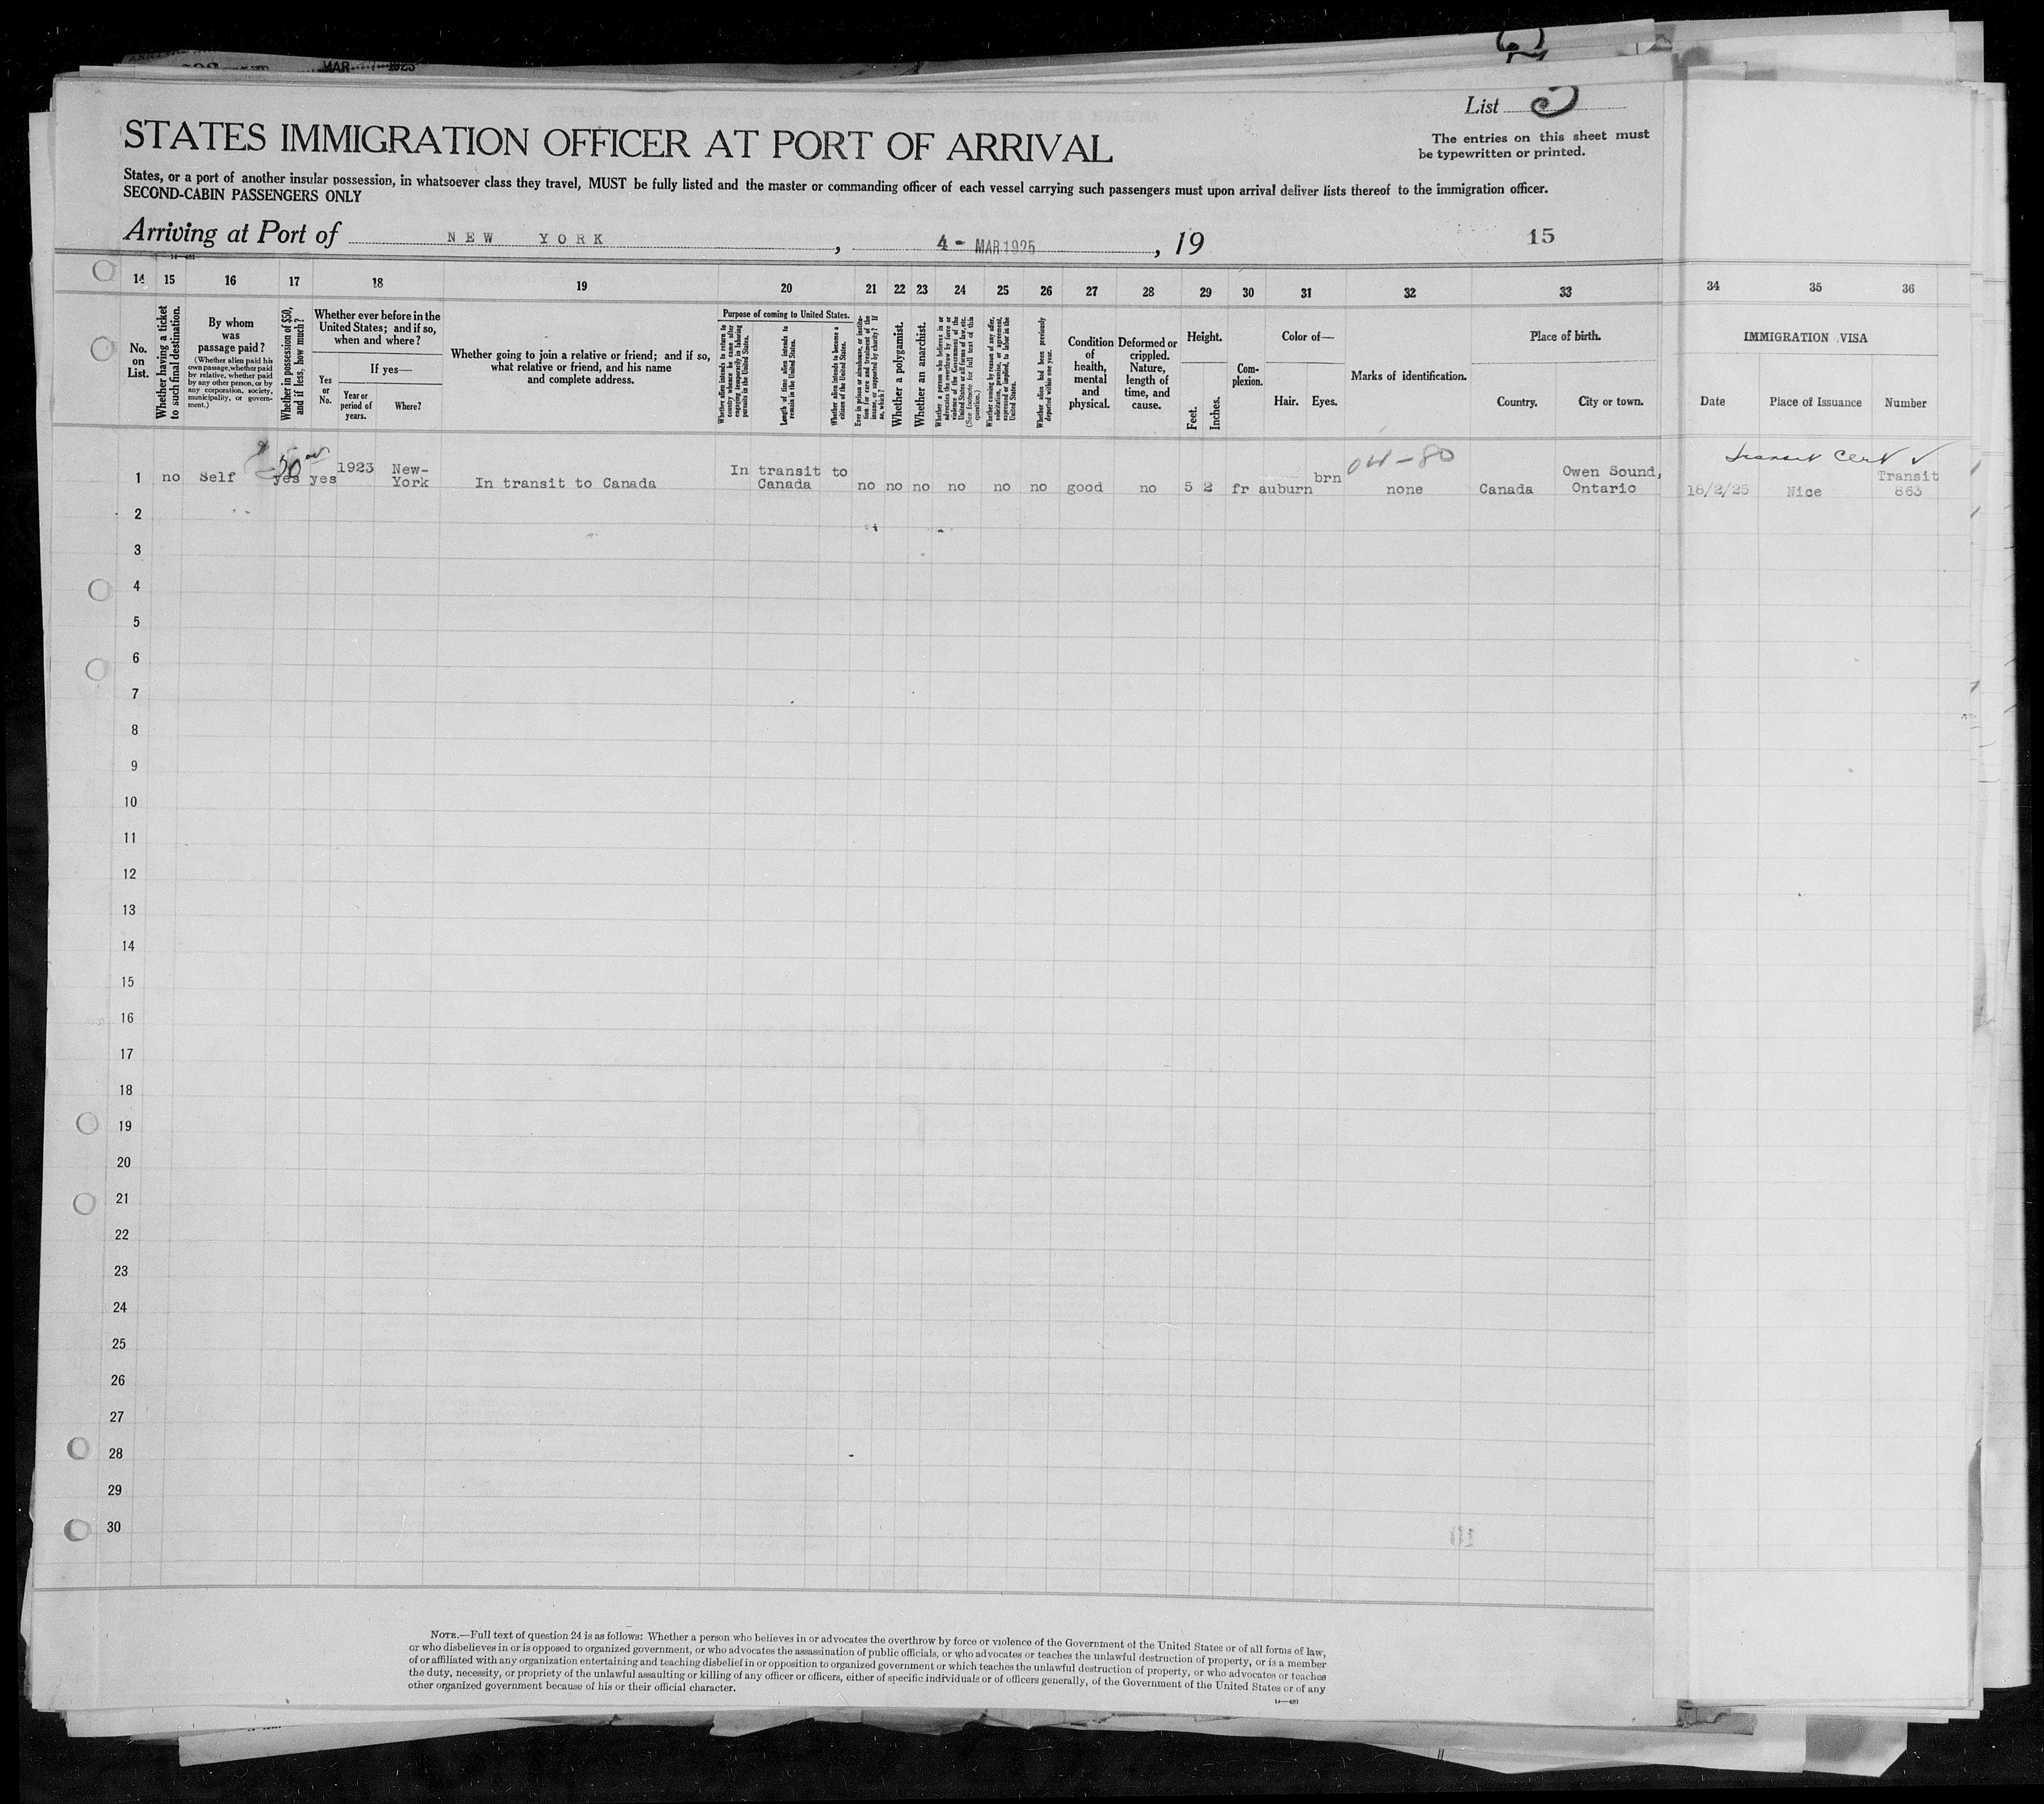 MAR 1925
List 3
The entries on this sheet must
be typewritten or printed.
STATES IMMIGRATION OFFICER AT PORT OF ARRIVAL
States, or a port of another insular possession, in whatsoever class they travel, MUST be fully listed and the master or commanding officer of each vessel carrying such passengers must upon arrival deliver lists thereof to the immigration officer.
SECOND-CABIN PASSENGERS ONLY
Arriving at Port of NEW YORK, 4- MAR 1925, 19
15
14 15 16 17 18 19 20 21 22 23 24 25 26 27 28 29 30 31 32 33 34 35 36
No.
on
List.
Whether having a ticket
to such final destination.
By whom
was
passage paid?
(Whether alien paid his
own passage, whether paid
by relative, whether paid
by any other person, or by
any corporation, society,
municipality, or govern-
ment.)
Whether in possession of $50,
and if less, how much?
Whether ever before in the
United States; and if so,
when and where?
If yes—
Yes
or
No.
Year or
period of
years.
Where?
Whether going to join a relative or friend; and if so,
what relative or friend, and his name
and complete address.
Purpose of coming to United States.
Whether alien intends to return to
country whence he came after
engaging temporarily in laboring
pursuits in the United States.
Length of time alien intends to
remain in the United States.
Whether alien intends to become a
citizen of the United States.
Ever in prison or almshouse, or institu-
tion for care and treatment of the
insane, or supported by charity? If
so, which?
Whether a polygamist.
Whether an anarchist.
Whether a person who believes in or
advocates the overthrow by force or
violence of the Government of the
United States or all forms of law, etc.
(See footnote for full text of this
question.)
Whether coming by reason of any offer,
solicitation, promise, or agreement,
expressed or implied, to labor in the
United States.
Whether alien had been previously
deported within one year.
Condition
of
health,
mental
and
physical.
Deformed or
crippled.
Nature,
length of
time, and
cause.
Height.
Feet.
Inches.
Com-
plexion.
Color of—
Hair. Eyes.
Marks of identification.
Place of birth.
Country. City or town.
IMMIGRATION VISA
Date Place of Issuance Number
$50 00
04-80
Transit Cert ✓
1 no Self yes yes 1923 New-
York In transit to Canada In transit to
Canada no no no no no no good no 5 2 fr auburn brn none Canada Owen Sound,
Ontario 18/2/25 Nice Transit
863
2
3
4
5
6
7
8
9
10
11
12
13
14
15
16
17
18
19
20
21
22
23
24
25
26
27
28
29
30
NOTE.—Full text of question 24 is as follows: Whether a person who believes in or advocates the overthrow by force or violence of the Government of the United States or of all forms of law,
or who disbelieves in or is opposed to organized government, or who advocates the assassination of public officials, or who advocates or teaches the unlawful destruction of property, or is a member
of or affiliated with any organization entertaining and teaching disbelief in or opposition to organized government or which teaches the unlawful destruction of property, or who advocates or teaches
the duty, necessity, or propriety of the unlawful assaulting or killing of any officer or officers, either of specific individuals or of officers generally, of the Government of the United States or of any
other organized government because of his or their official character.